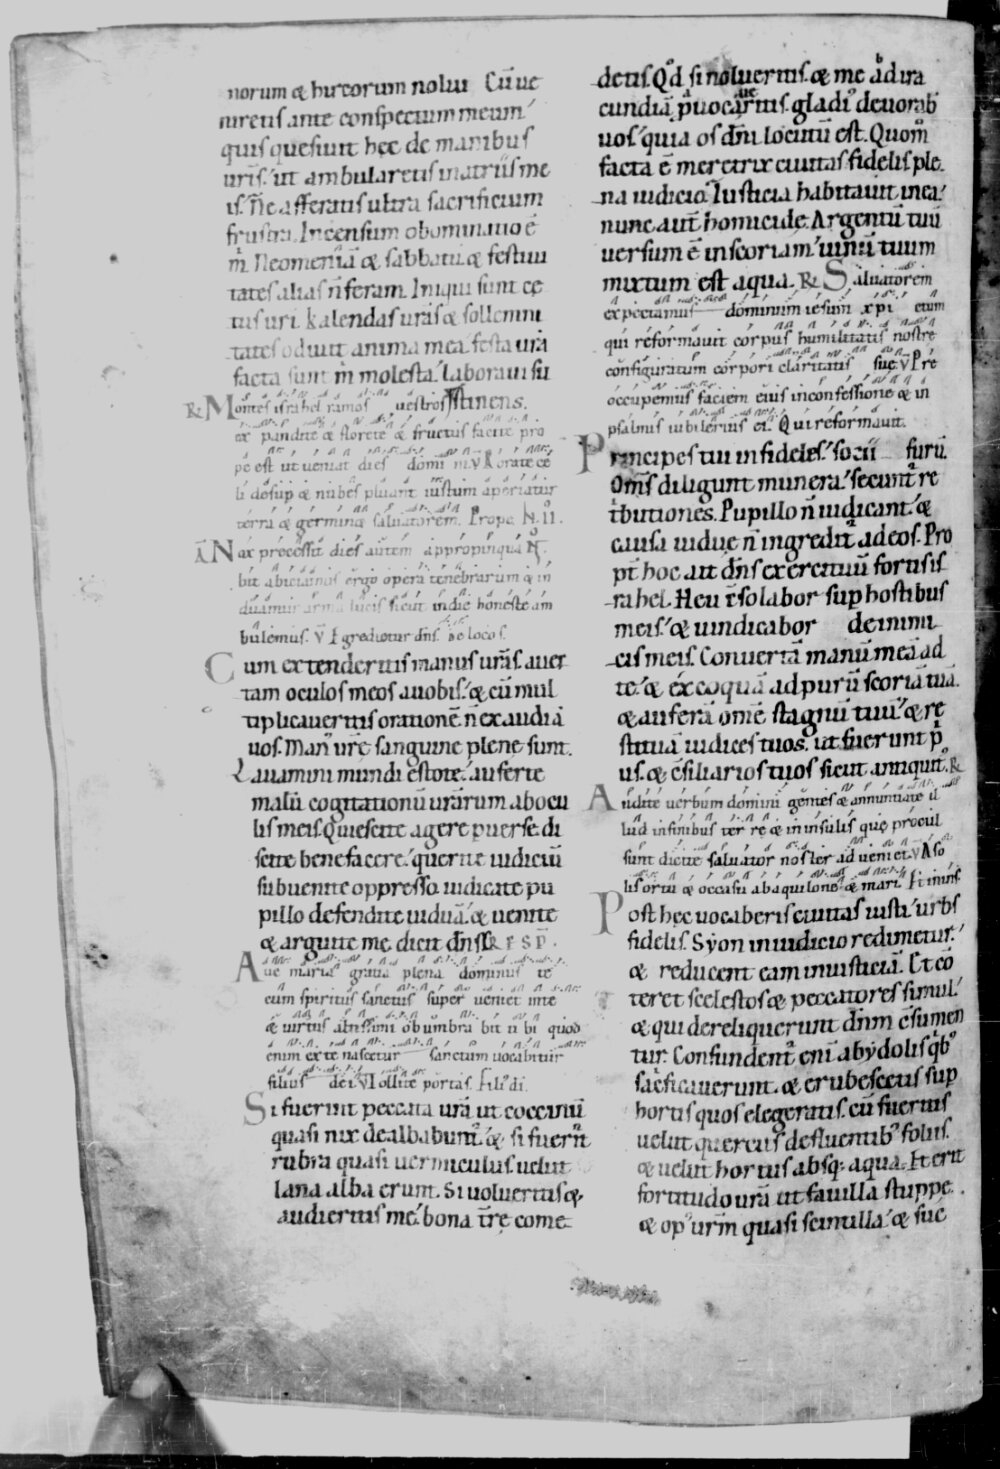 norum & hircorum nolui Cū ue
niretis ante conspectum meum
quis quesiuit hec de manibus
ur̄is. ut ambularetis in atriis me
is. Ne afferatis ultra sacrificium
frustra. Incensum abominatio ē
m̄. Neomeniā & sabbatū & festiui
tates alias n̄ feram. Iniqui sunt ce
tus uri. kalendas urās & sollemni
tates odiuit anima mea. facta
facta sunt m̄ molesta. laboraui su
R Montes israhel ramos uestros stinens.
expandite & florete & fructus facite pro
pe est ut ueniat dies domini. V Rorate ce
li desup & nubes pluant iustum aperiatur
terra & germinet saluatorem. Prope. N. II.
A Nox precessit dies autem appropinqua
bit abiciamus ergo opera tenebrarum & in
duamur arma lucis sicut in die honeste am
bulemus. V Egredietur dn̄s. de loco s.
Cum extenderitis manus urās auer
tam oculos meos a uobis. & cū mul
tiplicaueritis orationē n̄ exaudiā
uos. Man' ur̄e sanguine plene sunt.
Lauamini mundi estote. auferte
malū cogitationū urārum ab ocu
lis meis. Quiescite agere peruerse. di
scite benefacere. querite iudiciū
subuenite oppresso. iudicate pu
pillo defendite uiduā. & uenite
& arguite me. dicit dn̄s. RESP.
Aue maria gratia plena dominus te
cum spiritus sanctus superueniet in te
& uirtus altissimi obumbrabit tibi quod
enim ex te nascetur sanctum uocabitur
filius dei. V Tollite portas. Fili' di.
Si fuerint peccata urā ut coccinū
quasi nix dealbabunt̄. & si fuer̄nt
rubra quasi uermiculus. uelut
lana alba erunt. Si uolueritis &
audieritis me. bona tr̄e come
detis. Qd si nolueritis. & me ad ira
cundiā puocaueritis. gladi' deuorab
uos. quia os dn̄i locutū est. Quom̄
facta ē meretrix ciuitas fidelis ple
na iudicio. Iusticia habitauit in ea.
nunc aut̄ homicide. Argentū tuū
uersum ē in scoriam. uinū tuum
mixtum est aqua. R Saluatorem
expectamus dominum iesum xpi etum
qui reformauit corpus humilitatis nostre
configuratum corpori claritatis sue. V Pre
occupemus faciem eius in confessione & in
psalmis iubilemus ei. Qui reformauit.
Principes tui infideles. socii furū.
Om̄s diligunt munera. secunt̄ re
tbutiones. Pupillo n̄ iudicant. &
causa uidue n̄ ingredit̄ ad eos. Pro
pt̄ hoc ait dn̄s exercituū fortis is
rahel. Heu ēsolabor sup hostibus
meis. & uindicabor de inimi
cis meis. Conuertā manū meā ad
te. & excoquā ad purū scoriā tuā.
& auferā omē stagnū tuū. & re
stituā iudices tuos. ut fuerunt p̄
us. & ēsiliarios tuos sicut antiquit'. R
Audite uerbum domini gentes & annuntiate il
lud in finibus terre & in insulis que procul
sunt dicite saluator noster adueniet. V A so
lis ortu & occasu ab aquilone & mari. Et in ins.
Post hec uocaberis ciuitas iusti. urbs
fidelis. Syon in iudicio redimetur.
& reducent eam in iusticiā. Et cō
teret scelestos & peccatores simul.
& qui dereliquerunt dn̄m ēsumen
tur. Confundent̄ eni ab ydolis qb'
sacficauerunt. & erubescetis sup
hortis quos elegeratis. cū fueritis
uelut quercus defluentib' foliis.
& uelut hortus absq; aqua. Et erit
fortitudo urā ut fauilla stuppe.
& op' urm̄ quasi scintilla. & suc